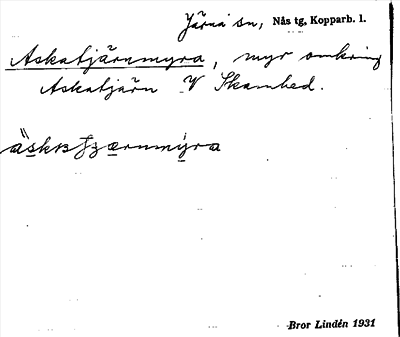 Järna sn, Nås tg, Kopparb. l.
Askatjärnmyra, myr omkring
Askatjärn V Skambed.
Bror Lindén 1931